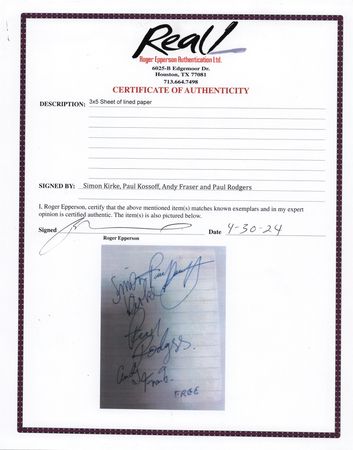 Real!
Roger Epperson Authentication Ltd.
6025-B Edgemoor Dr.
Houston, TX 77081
713.664.7498
CERTIFICATE OF AUTHENTICITY
DESCRIPTION: 3x5 Sheet of lined paper
SIGNED BY: Simon Kirke, Paul Kossoff, Andy Fraser and Paul Rodgers
I, Roger Epperson, certify that the above mentioned item(s) matches known exemplars and in my expert
opinion is certified authentic. The item(s) is also pictured below.
Signed Date 4-30-24
Roger Epperson
Simon
Kirke
Paul
Rodgers
Andy
FREE